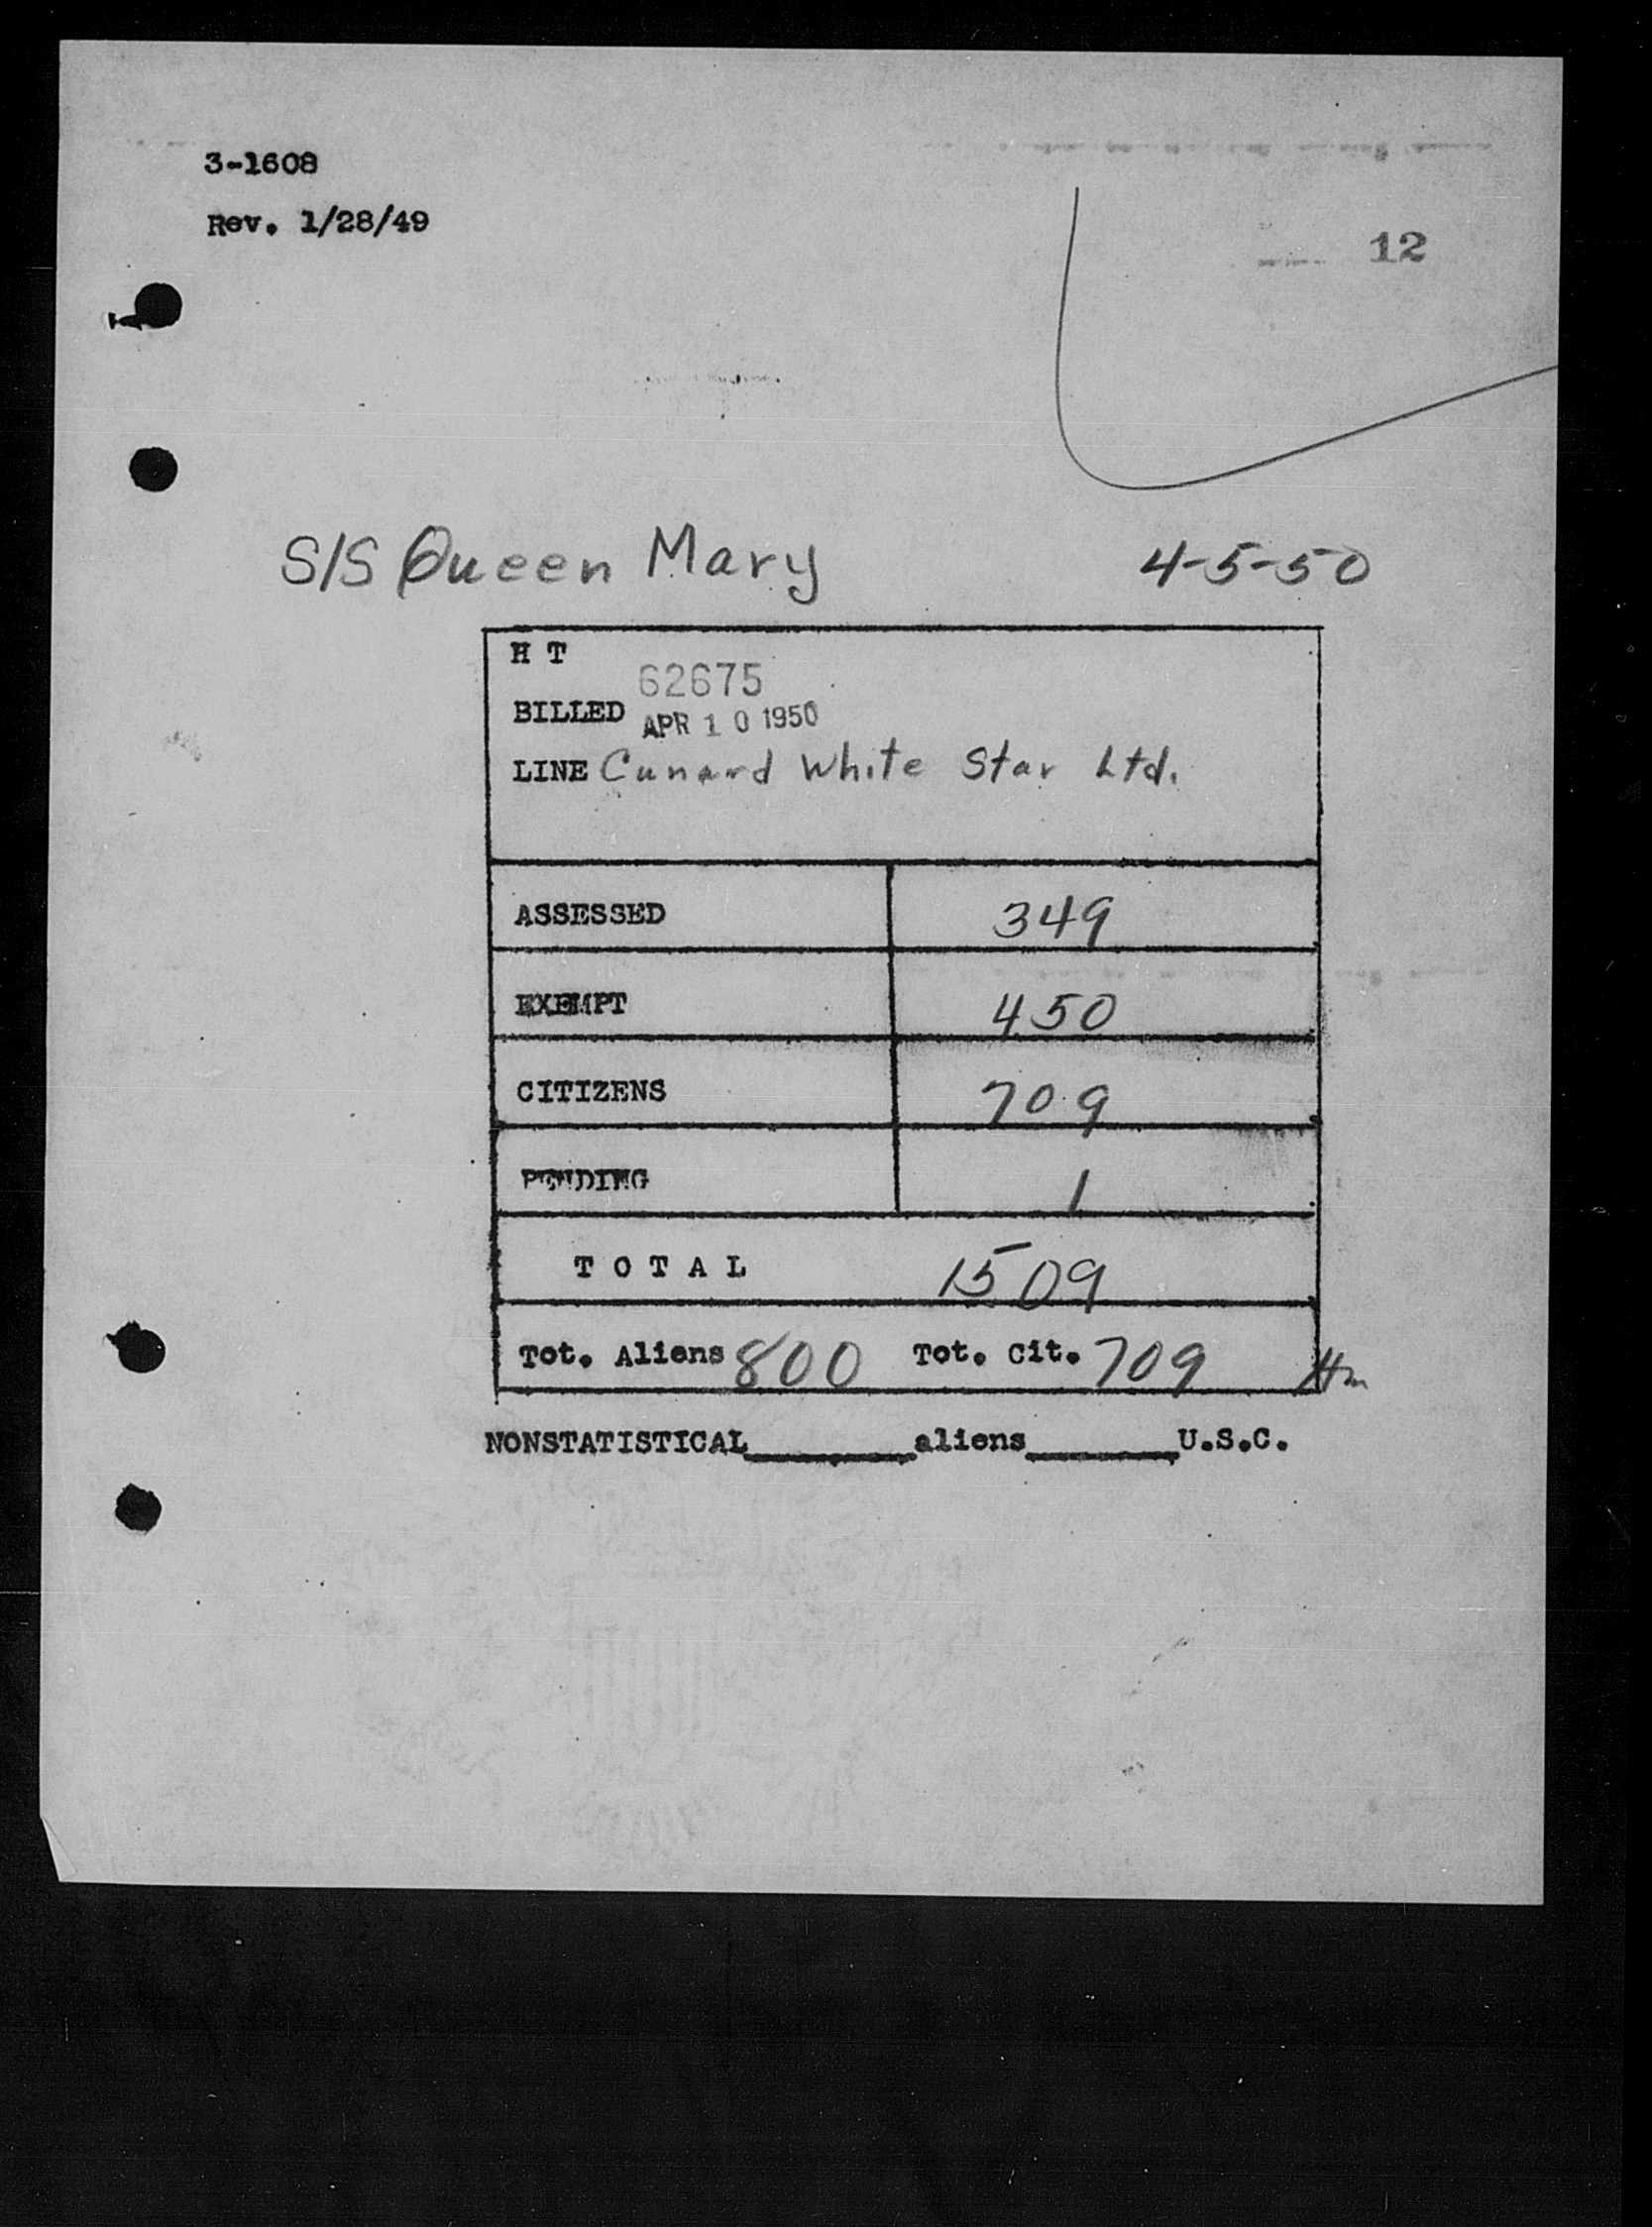 3-1608
Rev. 1/28/49
12
S/S Queen Mary 4-5-50
H T
62675
BILLED APR 10 1950
LINE Cunard White Star Ltd.
ASSESSED 349
EXEMPT 450
CITIZENS 709
PENDING 1
T O T A L 1509
Tot. Aliens 800 Tot. Cit. 709
NONSTATISTICAL________aliens_______U.S.C.